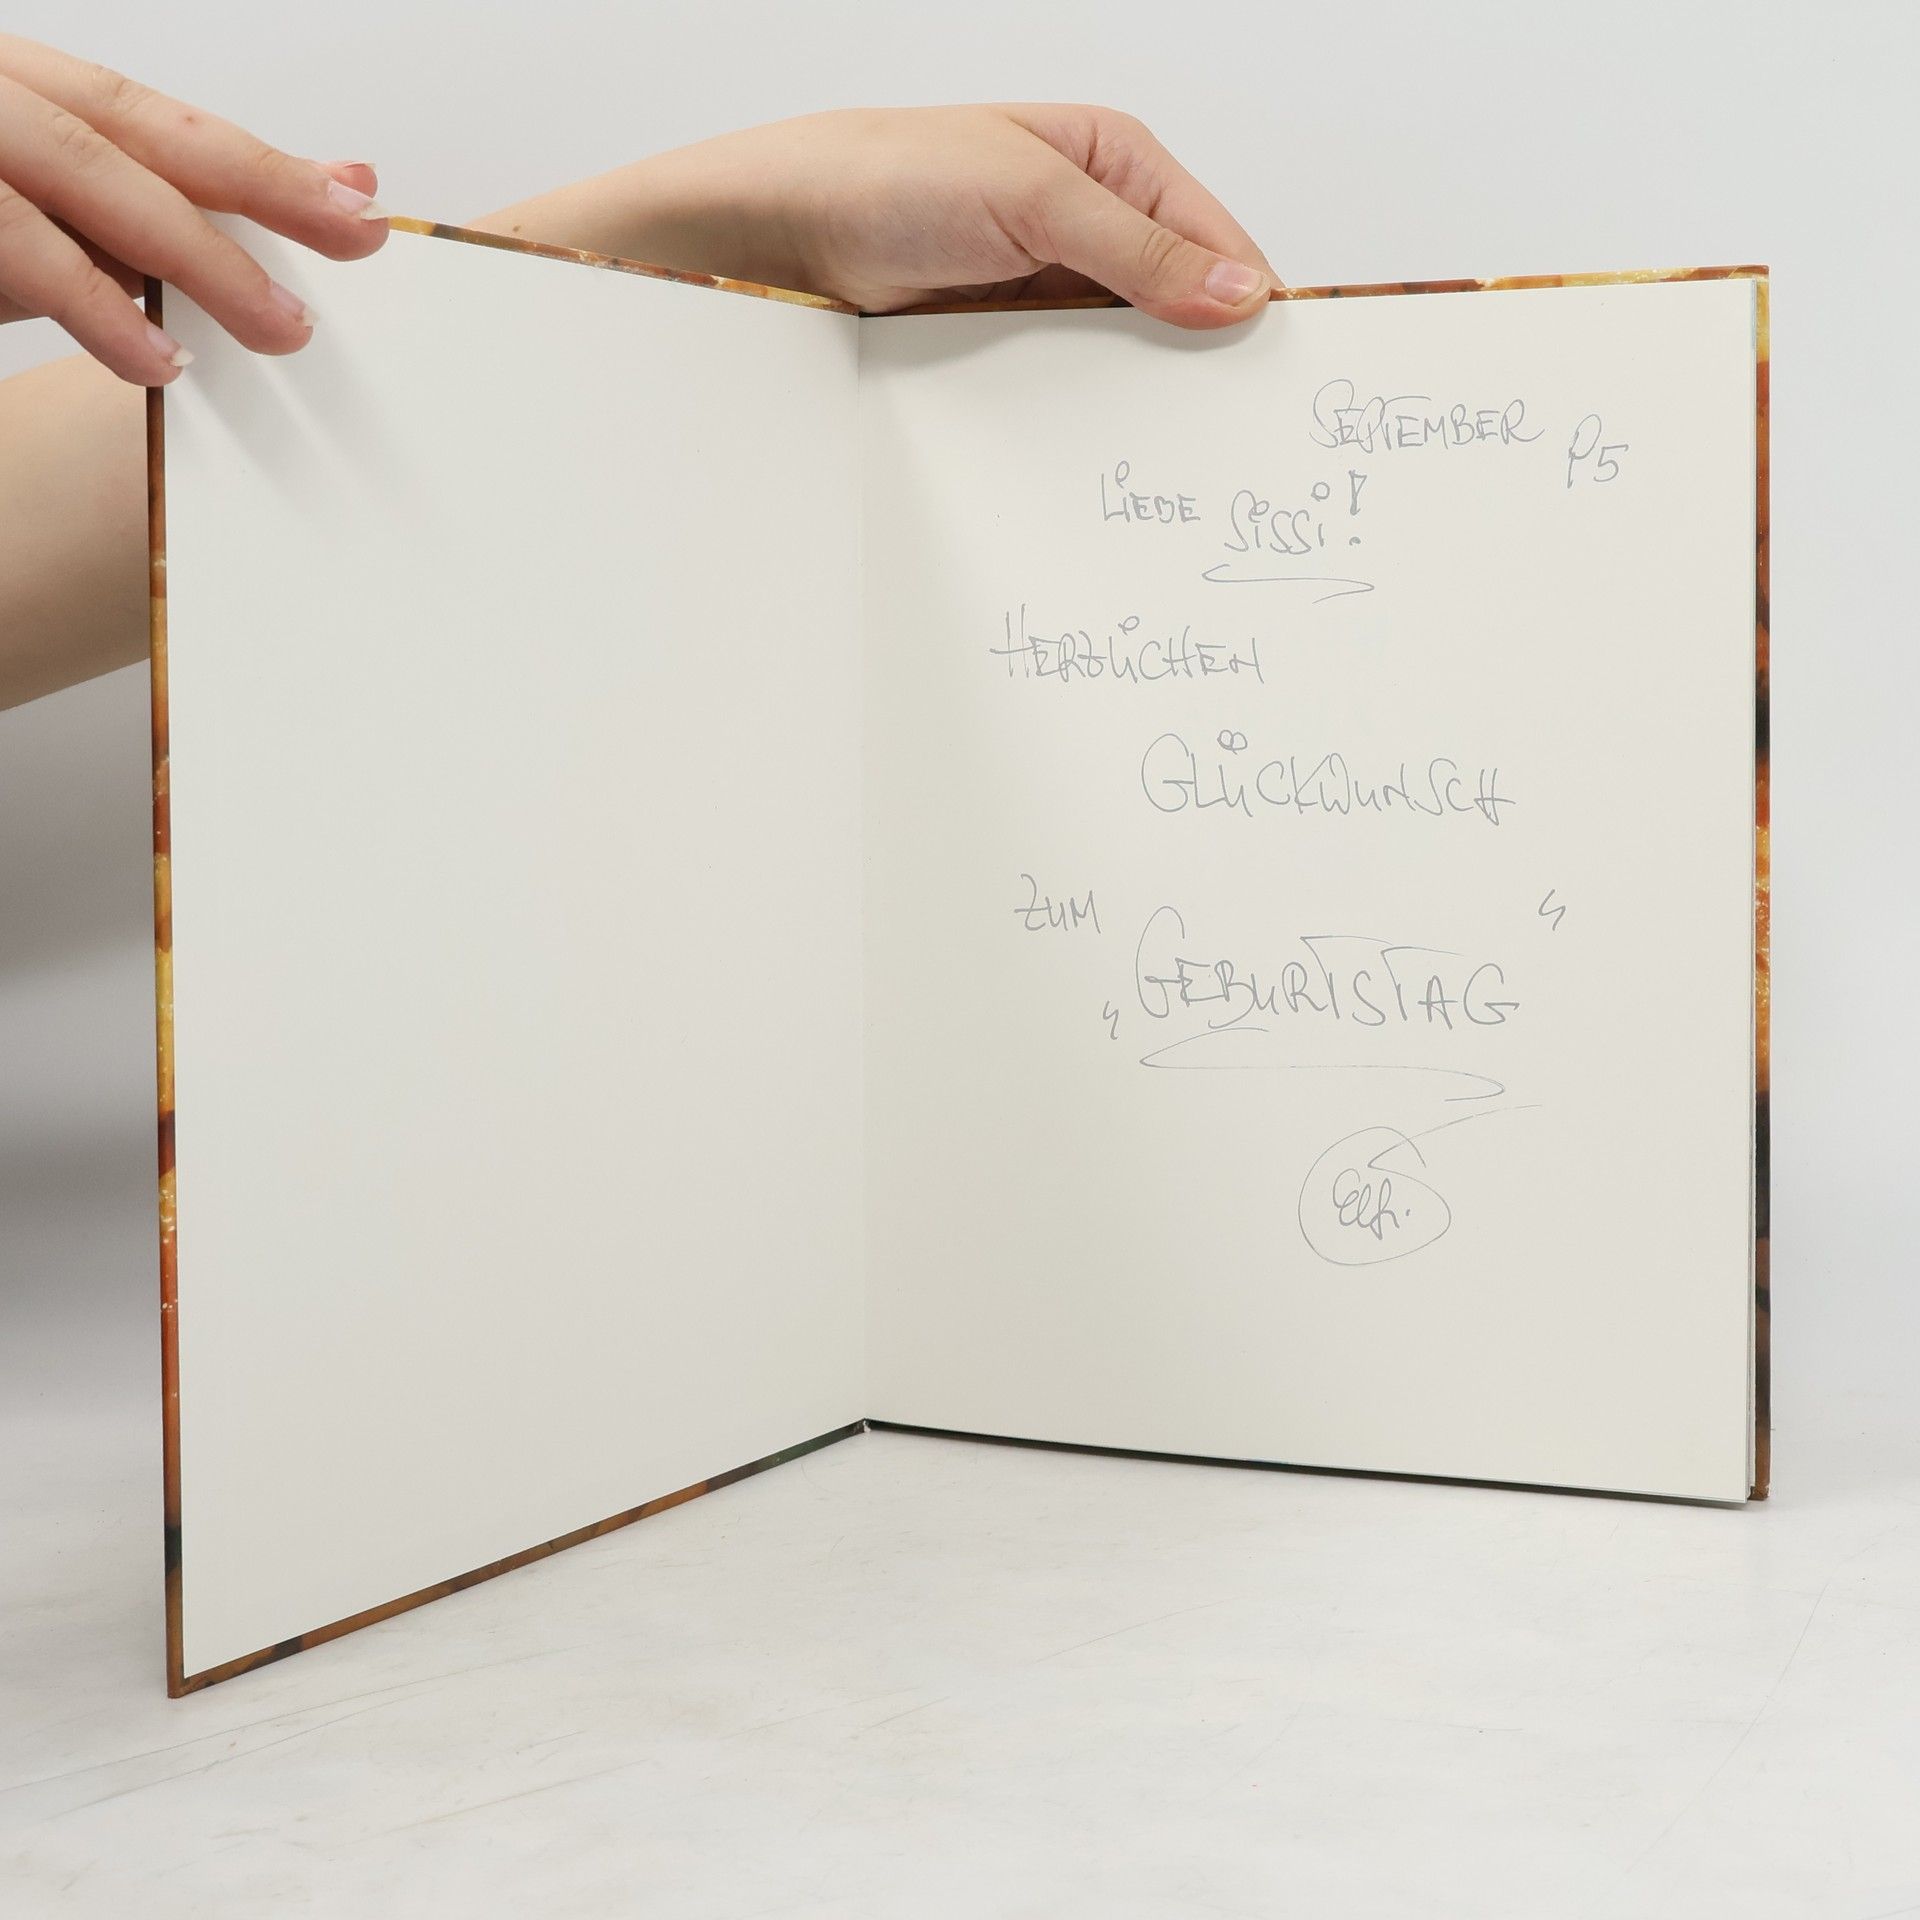 SEPTEMBER 95
LIEBE SISSI!
HERZLICHEN
GLÜCKWUNSCH
ZUM
„GEBURTSTAG“
Elfi.